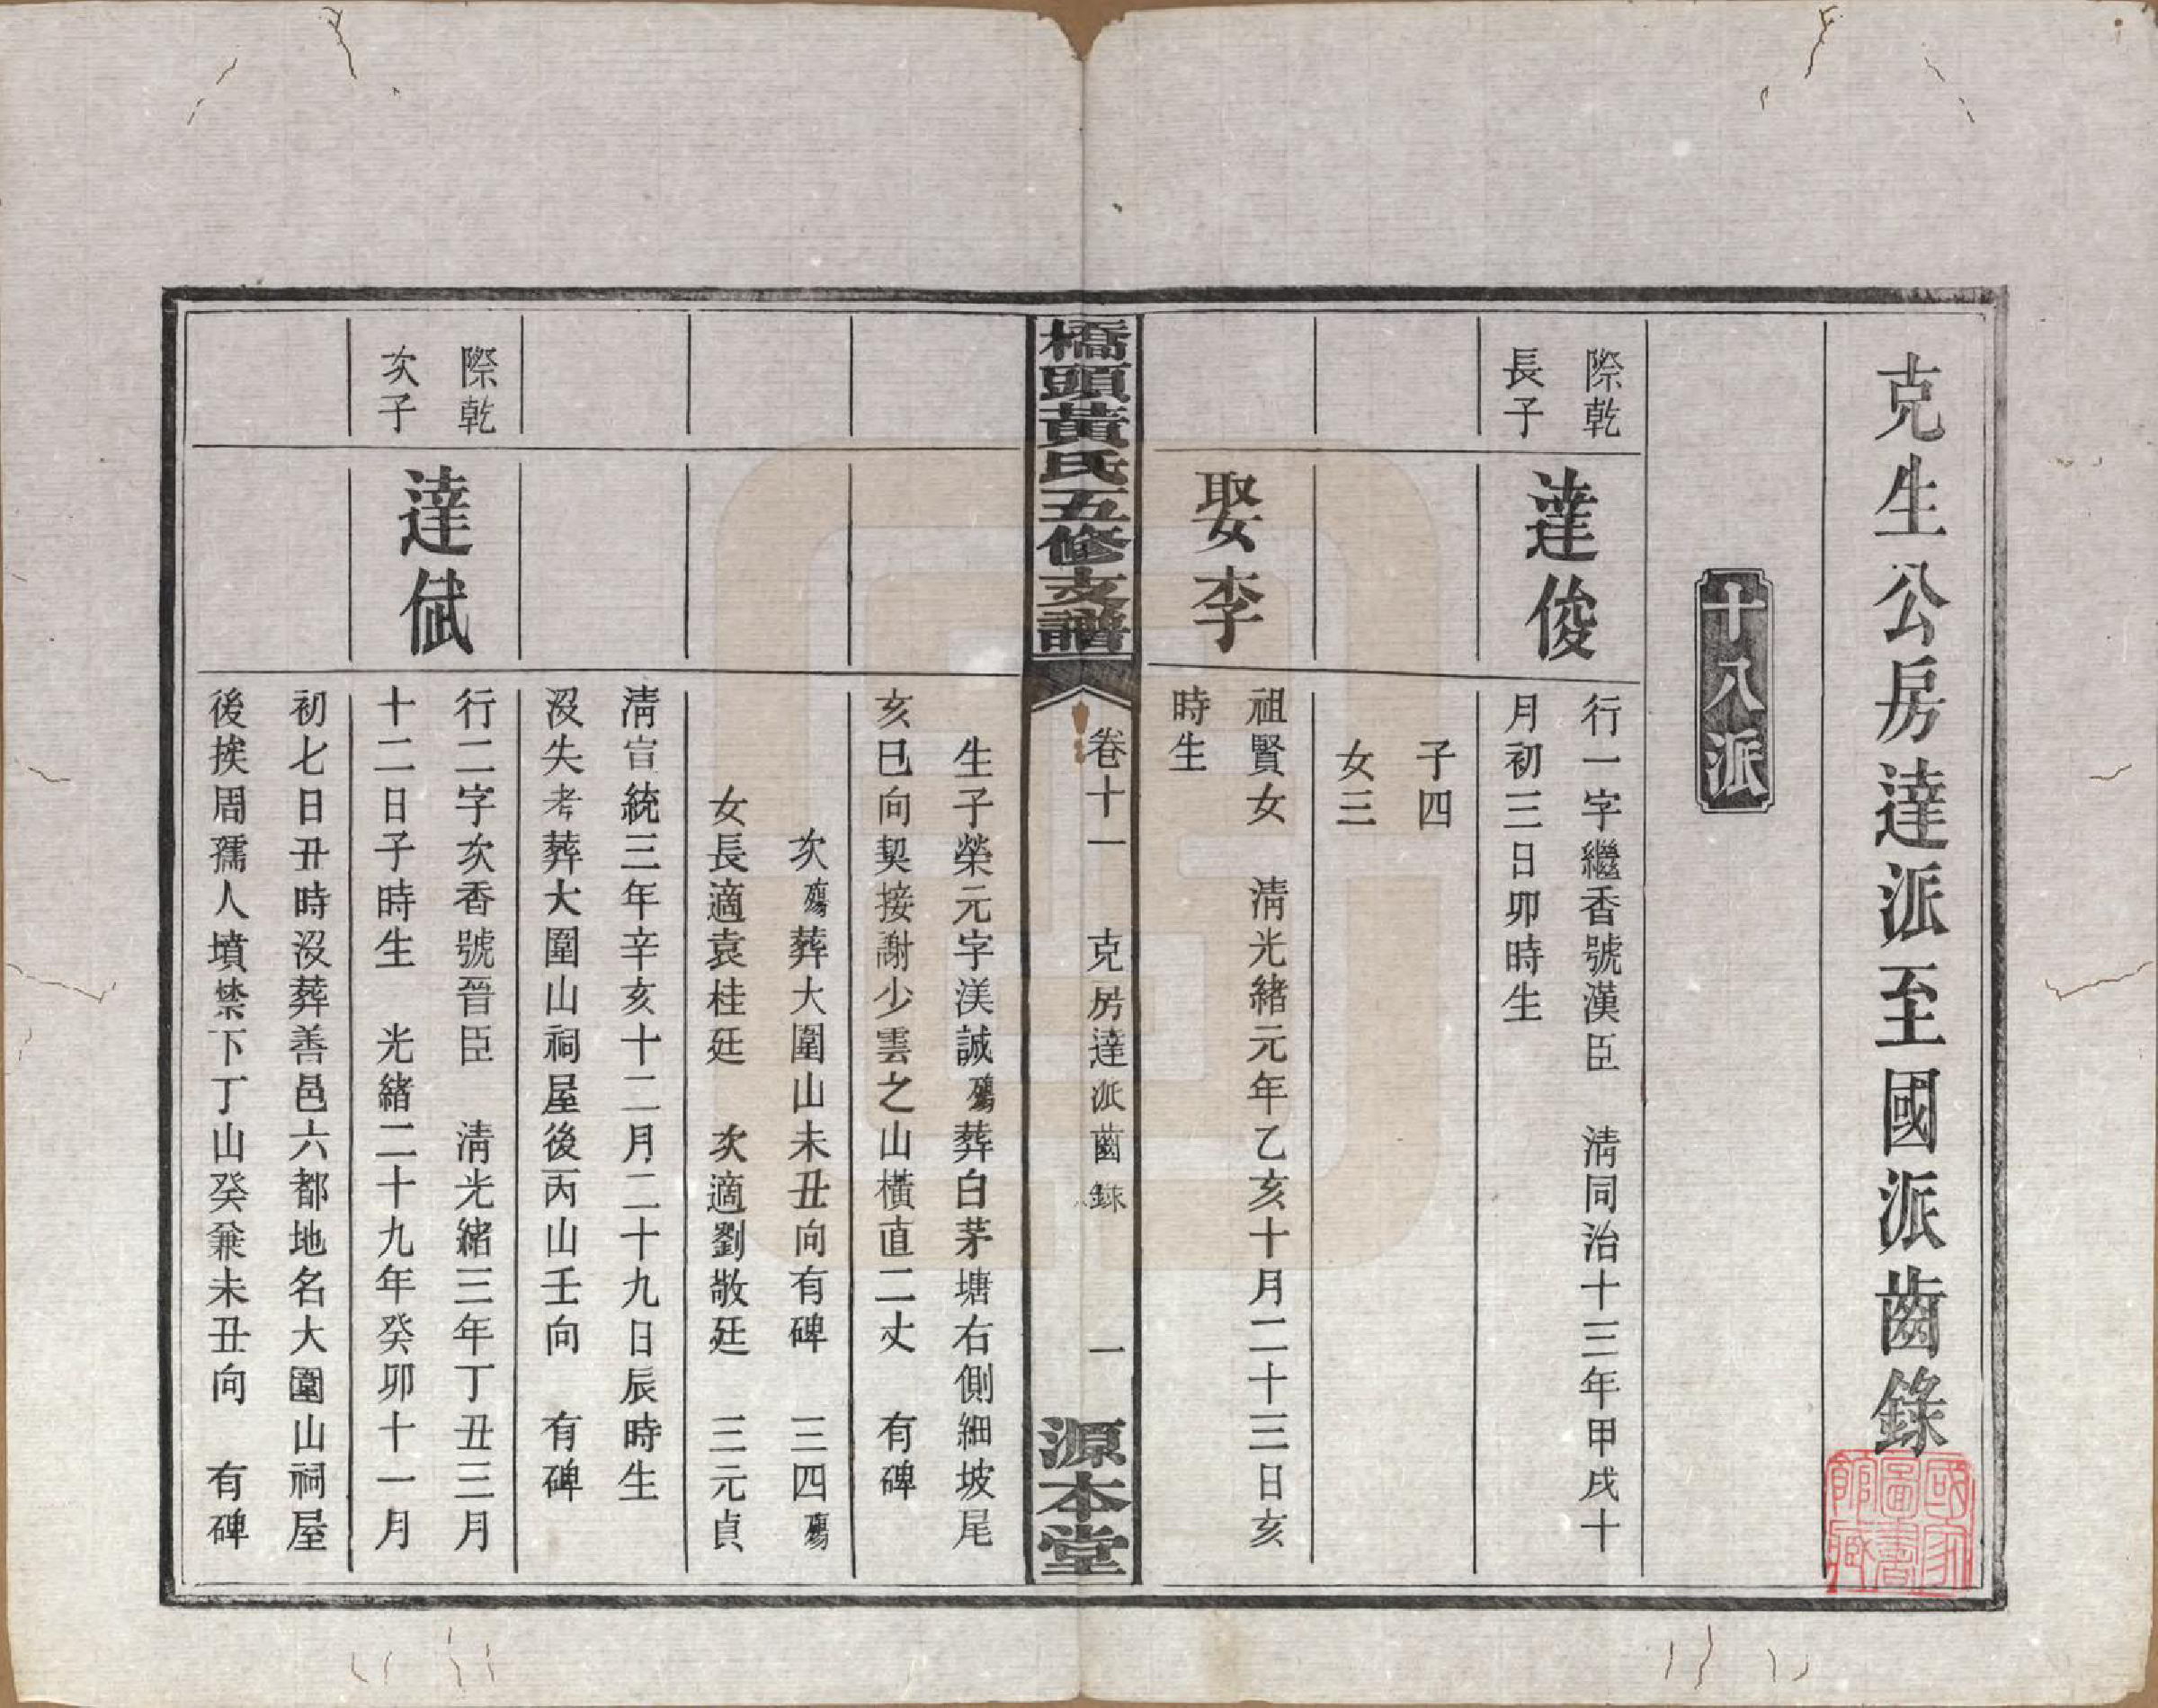 克生公房達派至國派齒錄
十八派
際乾
長子
達俊
行一字繼香號漢臣　清同治十三年甲戌十
月初三日卯時生
子四
女三
娶李
祖賢女　清光緒元年乙亥十月二十三日亥
時生
橋頭黃氏五修支譜
卷十一　克房達派齒錄　一
源本堂
生子榮元字渼誠殤葬白茅塘右側細坡尾
亥巳向契接謝少雲之山橫直二丈　有碑
次殤葬大圍山未丑向有碑　三四殤
女長適袁桂廷　次適劉敬廷　三元貞
清宣統三年辛亥十二月二十九日辰時生
沒失考葬大圍山祠屋後丙山壬向　有碑
際乾
次子
達斌
行二字次香號晉臣　清光緒三年丁丑三月
十二日子時生　光緒二十九年癸卯十一月
初七日丑時沒葬善邑六都地名大圍山祠屋
後挨周孺人墳禁下丁山癸兼未丑向　有碑
國家圖書館藏